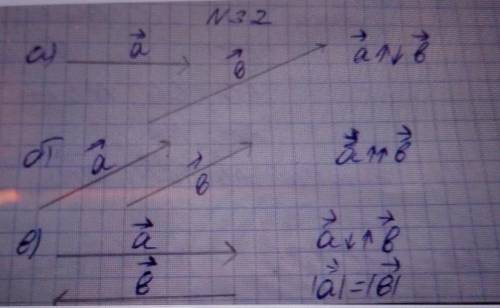 N32
а) a⃗ b⃗ a⃗↑↓b⃗
б) a⃗ b⃗ a⃗↑↑b⃗
в) a⃗ a⃗↓↑b⃗
b⃗ |a⃗|=|b⃗|